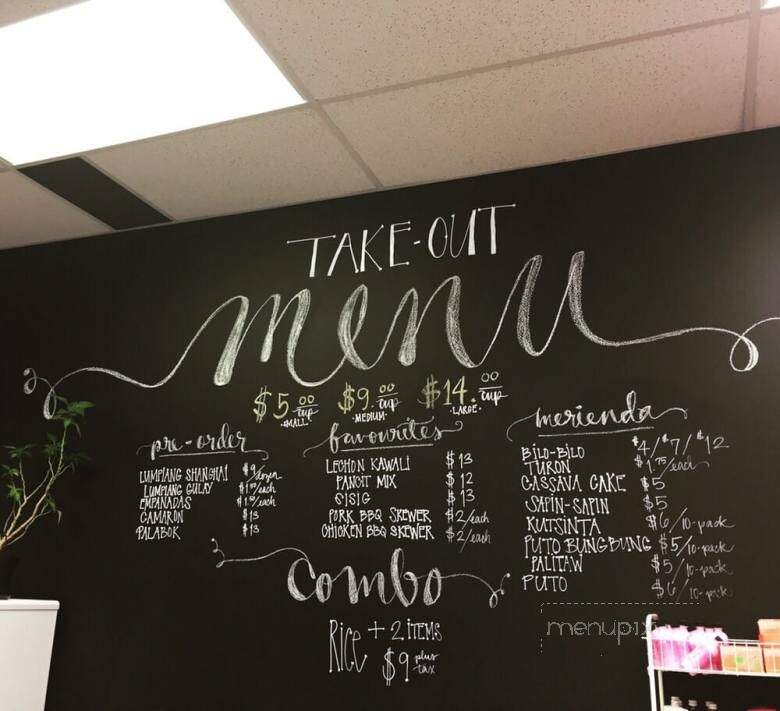 TAKE-OUT
menu
$5.00/cup SMALL $9.00/cup MEDIUM $14.00/cup LARGE
pre-order
LUMPIANG SHANGHAI $9/dozen
LUMPIANG GULAY /each
EMPANADAS /each
CAMARON $13
PALABOK $13
favourites
LECHON KAWALI $13
PANCIT MIX $12
SISIG $13
PORK BBQ SKEWER $2/each
CHICKEN BBQ SKEWER $2/each
merienda
BILO-BILO $4/$7/$12
TURON $1.75/each
CASSAVA CAKE $5
SAPIN-SAPIN $5
KUTSINTA $6/10-pack
PUTO BUNGBUNG $5/10-pack
PALITAW $5/10-pack
PUTO $6/10-pack
combo
Rice + 2 ITEMS
$9 plus tax
menupix